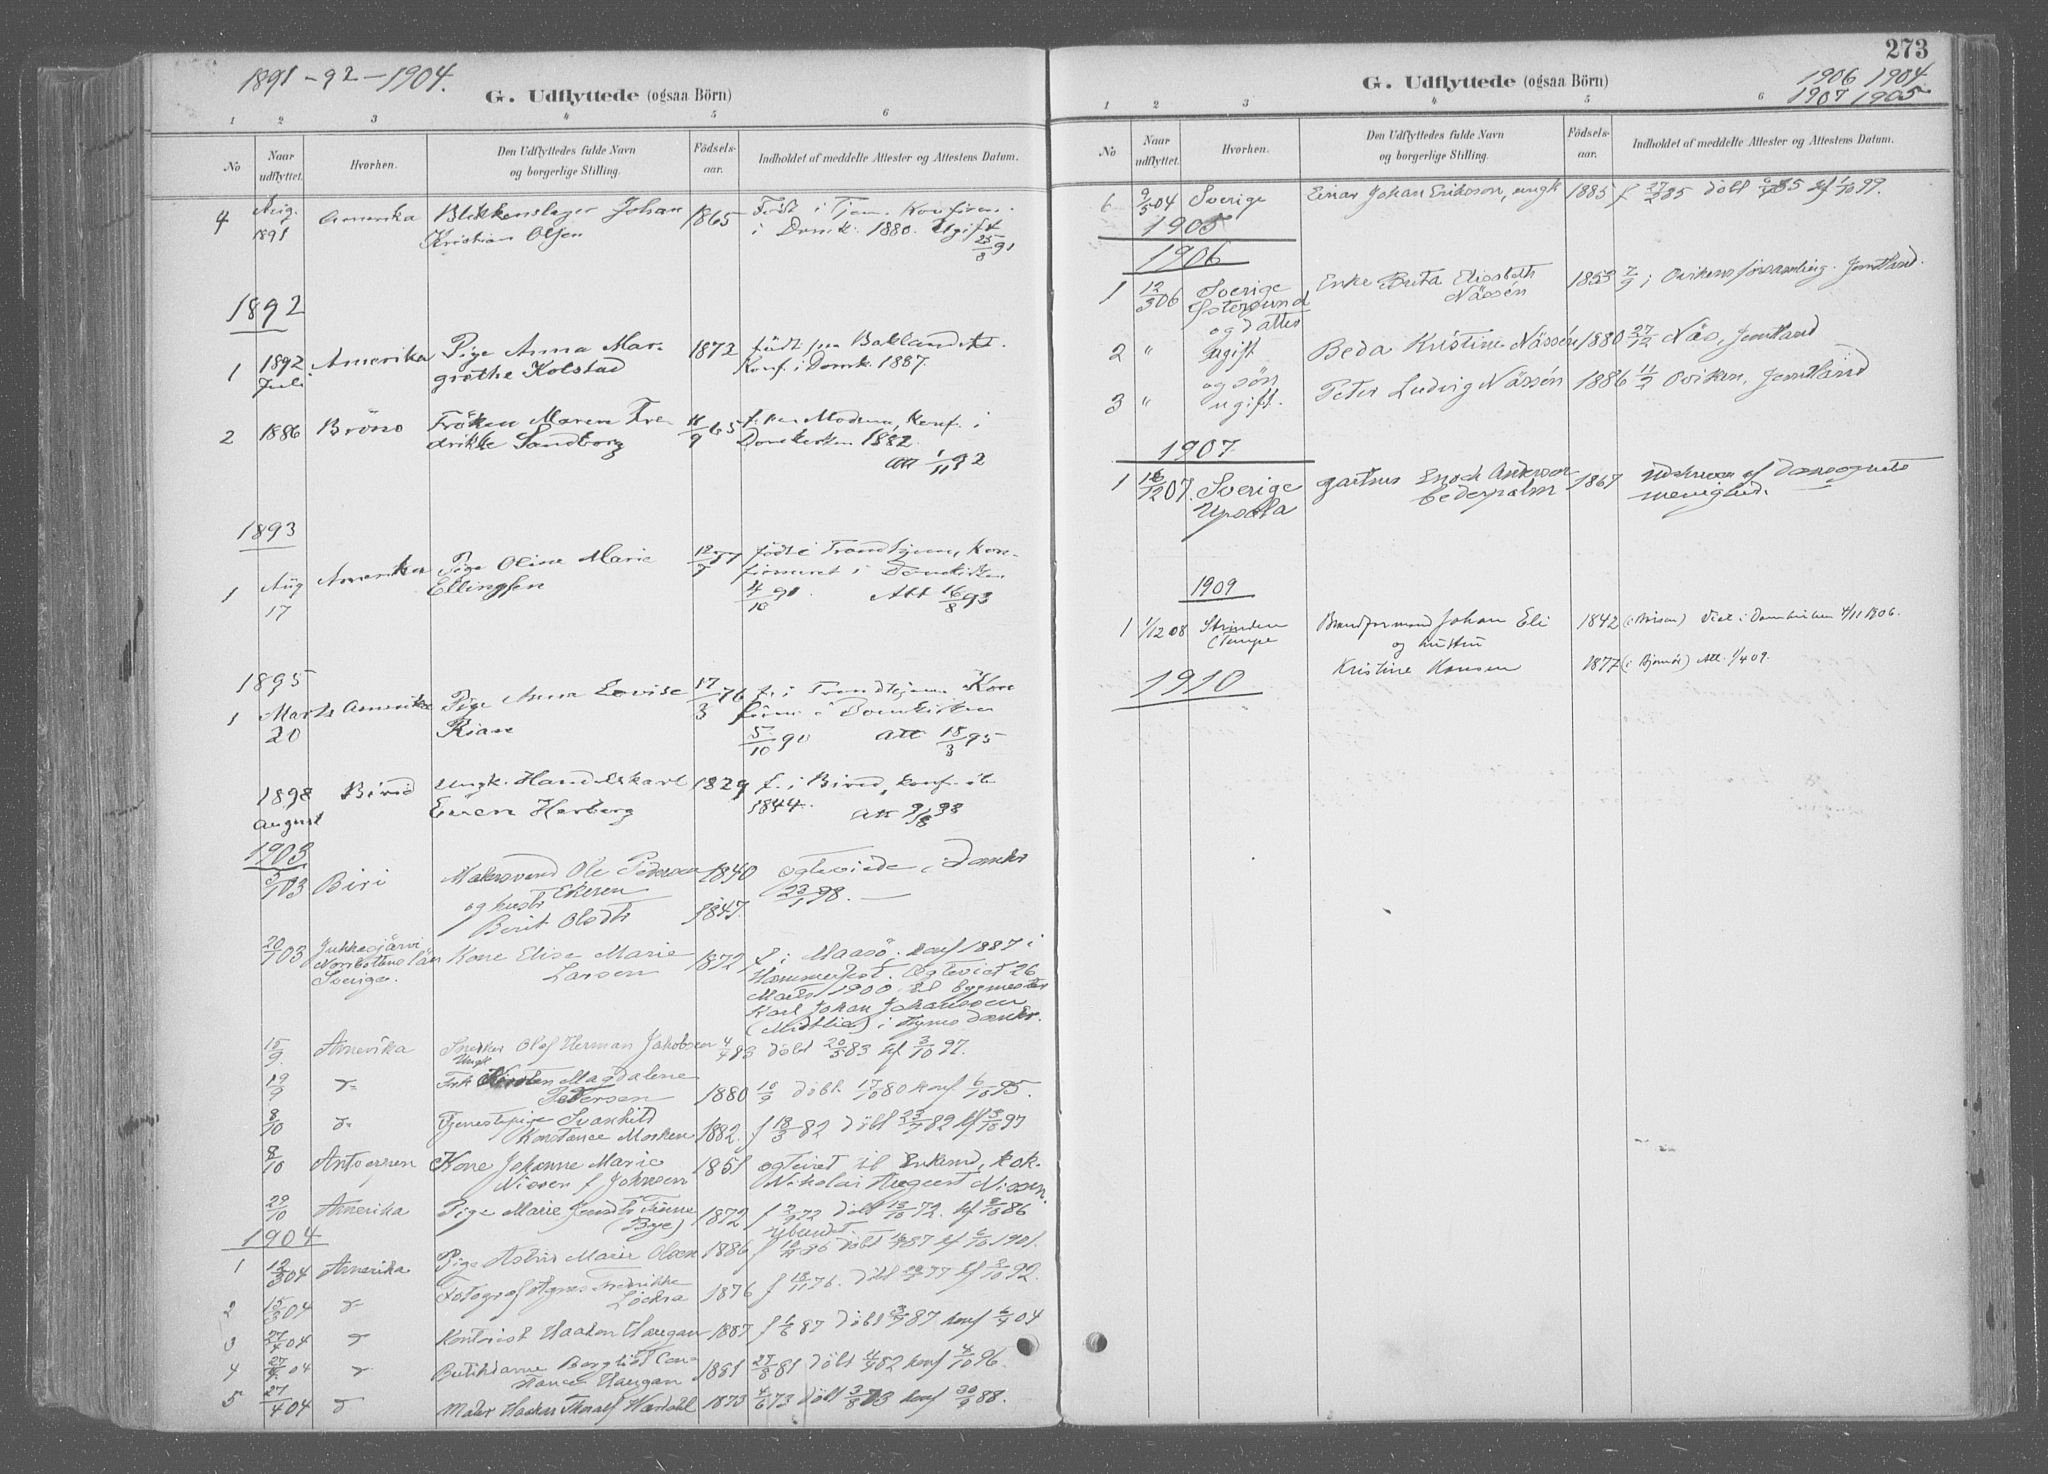 1891-92-1904.
G. Udflyttede (ogsaa Börn)
1 2 3 4 5 6
No
Naar udflyttet.
Hvorhen.
Den Udflyttedes fulde Navn og borgerlige Stilling.
Födsels- aar.
Indholdet af meddelte Attester og Attestens Datum.
4 Aug. Amerika Blikkenslager Johan 1865 Född i Tjem. Konfirm.
1891 Kristian Olsen i Domk. 1880. Ugift
25/8 91
1892
1 1892 Amerika Pige Anna Mar- 1872 födt paa Baklandet.
Juli grethe Kolstad Konf. i Domk. 1887.
2 1886 Brönö Fröken Maren Fre- 11/9 65 Konf. i
drikke Sandborg Domkirken 1882.
Att 1/11 92
1893
1 Aug Amerika Pige Oline Marie 12/7 77 födt i Trondhjem, Kon-
17 Ellingsen firmeret i Domkirken
4/10 91. Att 16/8 93
1895
1 Marts Amerika Pige Anna Lovise 17/3 76 f. i Trondhjem Kon
20 Rian firm i Domkirken
5/10 90 Att 18/3 95
1898 Birid Ungk. Handelskarl 1829 f. i Birid, konf. ib
August Even Herberg 1844. Att 9/8 98
1903
3/1 03 Biri Malersvend Ole Pedersen 1840 ogteviede i Domkr
og hustr Ekeren 23/1 98.
Berit Olsdtr 1847.
20/1 03 Jukkasjärvi Kone Elise Marie 1872 f i Maasö, konf 1887 i
Norrbottens län Larsen Hammerfest. Ogteviet 26
Sverige. Marts 1900 til bygmester
Karl Johan Johansson
(Midtlid) i Tr.hjems Domkr.
15/9. Amerika Snekker Olaf Herman Jakobsen 4/4 83 döbt 20/5 83 kf 3/10 97.
Ungk
19/9 d- Frk Kirsten Magdalene
Petersen 1880 10/9 döbt. 17/10 80 konf 6/10 95.
8/10 d- Tjenestepige Svanhild
Konstance Mosken 1882. f 18/3 82 döbt 23/7 82 kf 3/10 97
8/10 Antverpen Kone Johanne Marie 1851 ogteviet til Enkemd, kok.
Nissen f Johnsen Nikolai August Nissen.
29/10 Amerika Pige Marie
(Bye) 1872 f 2/9 72 döbt 13/10 72. kf 3/10 86
ubundet.
1904
1 12/3 04 Amerika Pige Astrid Marie Olsen 1886 f 10/11 86 döbt 16/1 87 kf 6/10 1901.
2 15/3 04 d Fotograf Agnes Fredrikke
Löckra 1876 f 18/11 76. döbt 77 kf 2/10 92.
3 27/4 04 d Kontorist Haakon Haugan 1887 f 6/6 87 döbt 3/7 87 konf 04
4 27/4 04 d Butikdame Bergliot Con-
stance Haugan 1881 27/8 81 döbt 82 konf 4/10 96.
5 27/4 04 d Maler Haakon Thoralf Hardahl 1873 4/6 73 döbt 3/8 73 konf 30/9 88.
273
1906 1904
1907 1905
G. Udflyttede (ogsaa Börn)
1 2 3 4 5 6
No
Naar udflyttet.
Hvorhen.
Den Udflyttedes fulde Navn og borgerlige Stilling.
Födsels- aar.
Indholdet af meddelte Attester og Attestens Datum.
6 9/5 04 Sverige Einar Johan Eriksson, ungk 1885 f 27/2 85 döbt 85 kf 1/10 99.
1905
1906
1 12/3 06 Sverige Enke Brita Elisabeth 1853 7/9 i Ovikens församling. Jemtland.
Östersund Nässén
og datter
2 " ugift Beda Kristine Nässén 1880 27/12 Näs, Jemtland
og sön
3 " ugift. Peter Ludvig Nässén 1886 11/2 Oviken, Jemtland
1907
1 16/12 07. Sverige gartner Enoch Andersson 1867 Udskreven af Domsognets
Upsala Cederholm menighed.
1909
1 1/12 08 Strinden Brandformand Johan Eli 1842 (i Börsen) Viet i Domkirken 4/11 1906.
(Tempe og hustru
Kristine Hansen 1877 (i Bjornör) Att. 1/4 09.
1910